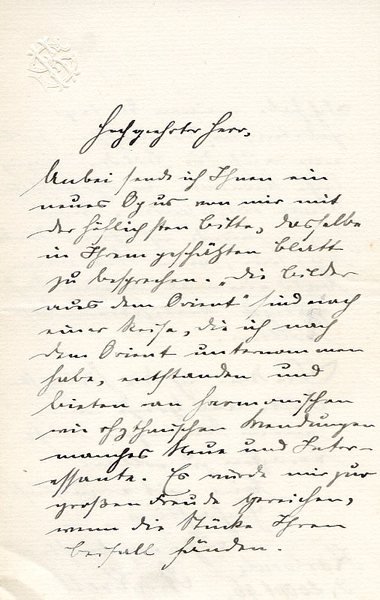 Hochgeehrter Herr,
Anbei sende ich Ihnen ein
neues Opus von mir mit
der höflichsten Bitte, dasselbe
in Ihrem geschäzten Blatt
zu besprechen. „Die Bilder
aus dem Orient“ sind nach
einer Reise, die ich nach
dem Orient unternommen
habe, entstanden und
bieten an harmonischen
wie rhythmischen Wendungen
manches Neue und Inter-
essante. Es würde mir zur
großen Freude gereichen,
wenn die Stücke Ihren
Beifall fänden.